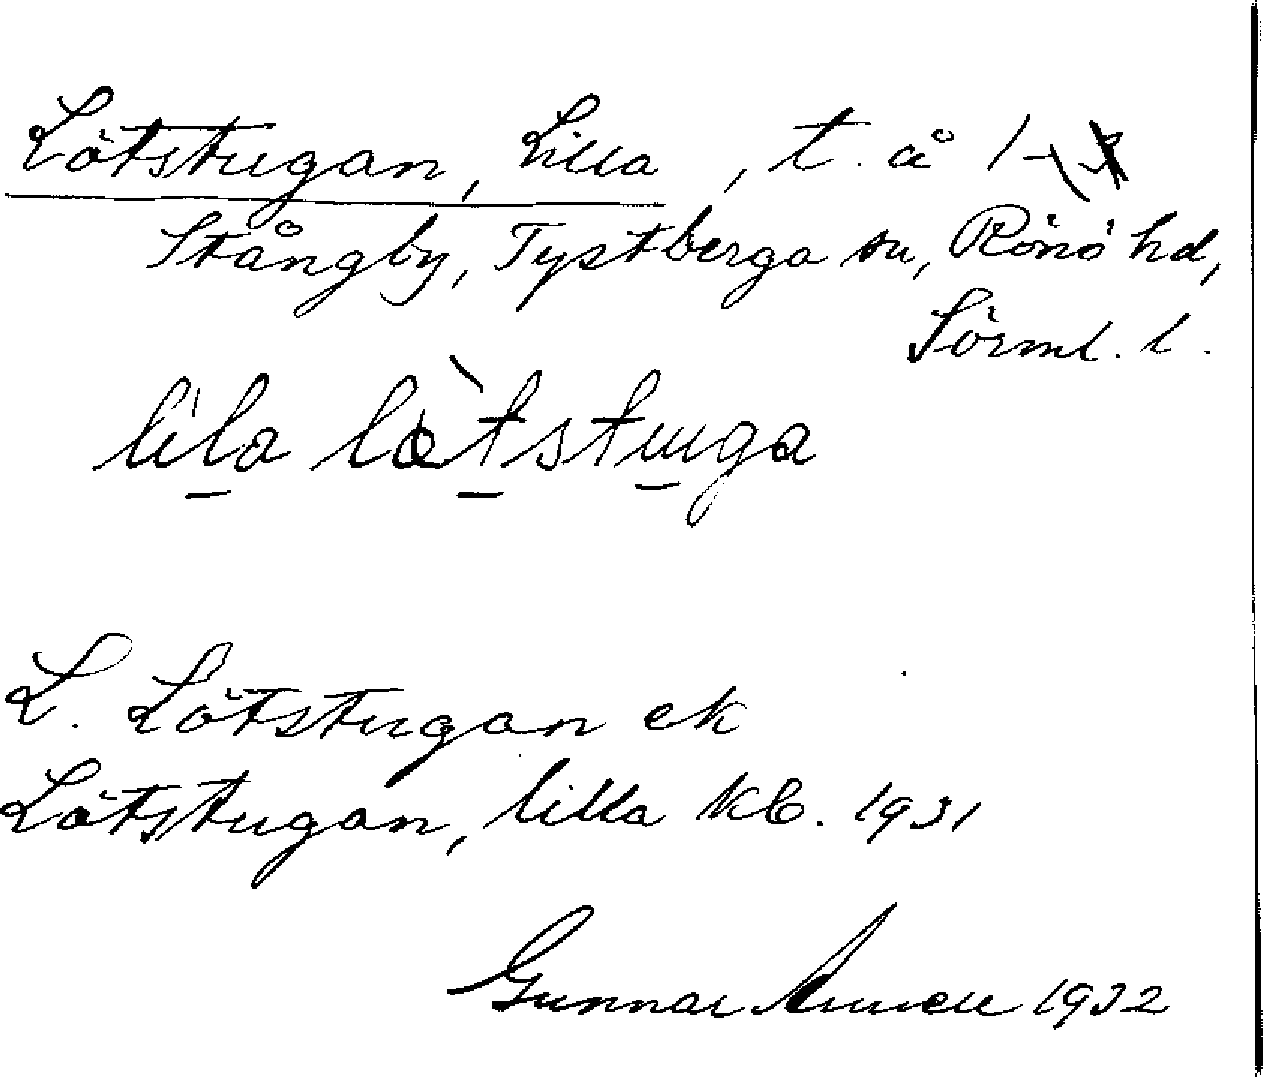 Lötstugan, Lilla, t. å 1
Stångby, Tystberga sn, Rönö hd,
Sörml. l.
lila lötstuga
L. Lötstugan ek
Lötstugan, lilla kb. 1931
Gunnar 1932